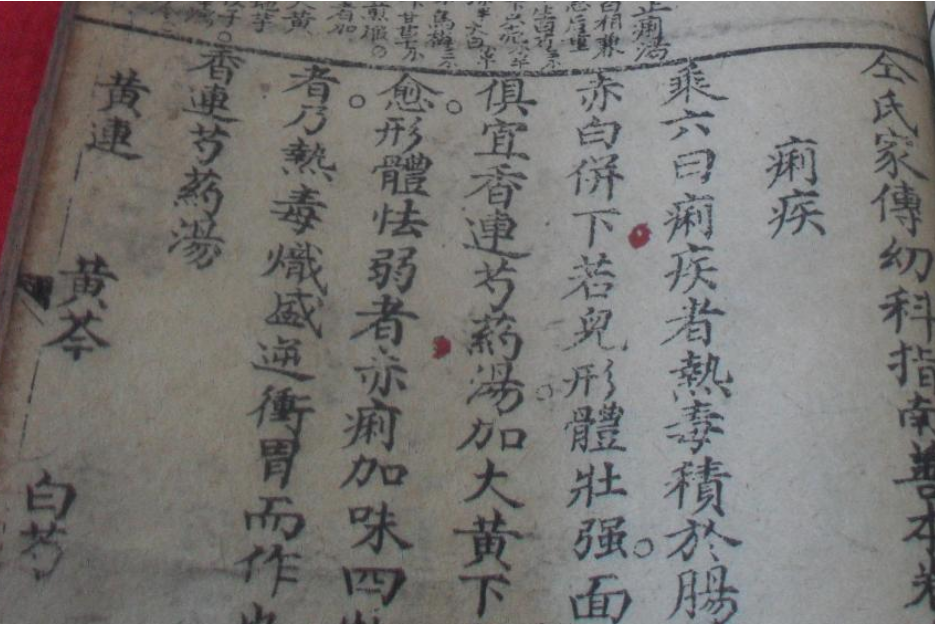 仝氏家傳幼科指南善本卷
痢疾
乘六曰痢疾者熱毒積於腸
赤白併下若兒形體壯强。面
俱宜香連芍藥湯。加大黃下
愈。形體怯弱者赤痢加味四
者。乃熱毒熾盛逆衝胃而作
香連芍藥湯
黃連 黃芩 白芍
止痢湯